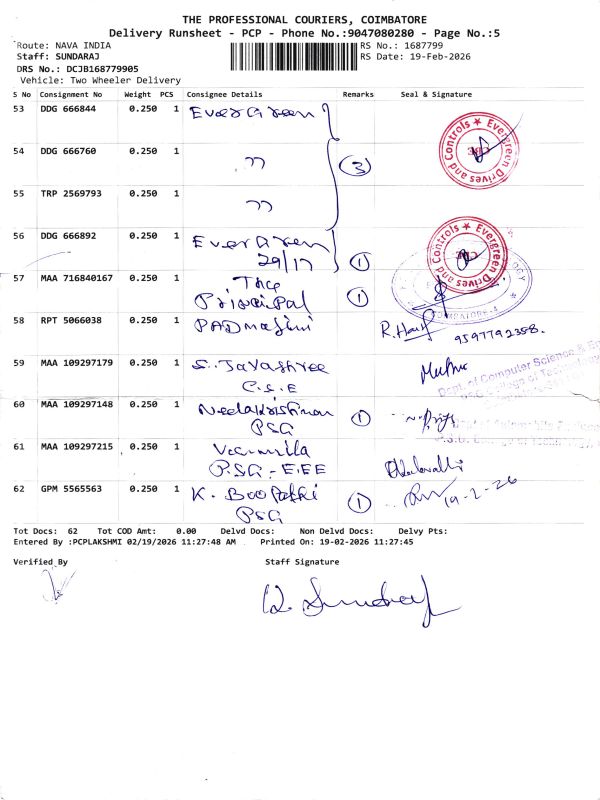 THE PROFESSIONAL COURIERS, COIMBATORE
Delivery Runsheet - PCP - Phone No.:9047080280 - Page No.:5
Route: NAVA INDIA
RS No.: 1687799
Staff: SUNDARAJ
RS Date: 19-Feb-2026
DRS No.: DCJB168779905
Vehicle: Two Wheeler Delivery
S No Consignment No Weight PCS Consignee Details Remarks Seal & Signature
53 DDG 666844 0.250 1 EverGreen
Evergreen Drives and Controls
54 DDG 666760 0.250 1 " 3
55 TRP 2569793 0.250 1 "
56 DDG 666892 0.250 1 EverGreen
29/17 1
Evergreen Drives and Controls
57 MAA 716840167 0.250 1 The
Principal 1
COIMBATORE-4
58 RPT 5066038 0.250 1 PADmaJini R.Hari
9597792358.
59 MAA 109297179 0.250 1 S. Jayashree
C.S.E
Dept. of Computer Science &
60 MAA 109297148 0.250 1 Neelakrishnan
PSG 1
61 MAA 109297215 0.250 1
PSG-EEE
62 GPM 5565563 0.250 1 K. Boopathi
PSG 1
19-2-26
Tot Docs: 62 Tot COD Amt: 0.00 Delvd Docs: Non Delvd Docs: Delvy Pts:
Entered By :PCPLAKSHMI 02/19/2026 11:27:48 AM Printed On: 19-02-2026 11:27:45
Verified By Staff Signature